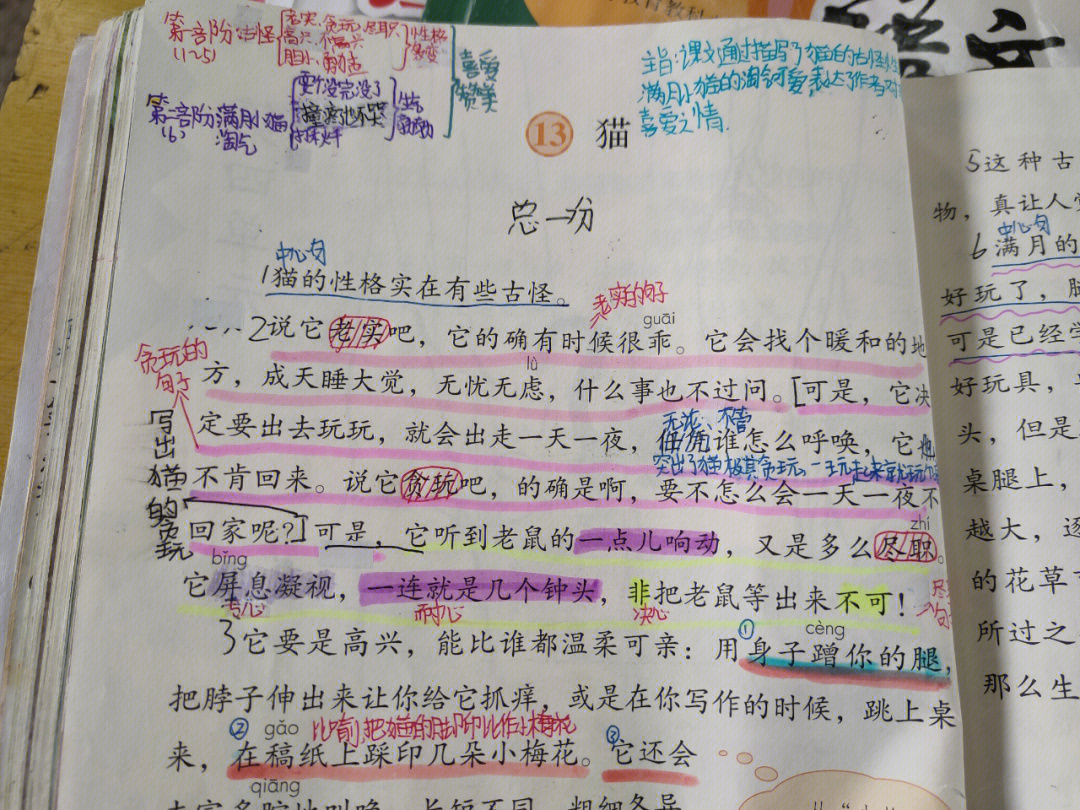 第一部阶:古怪
(1~5)
老实、贪玩、尽职
高兴、不高兴
胆小、勇猛
性格
多变
喜爱
赞美
第二部阶:满月小猫
(6) 淘气
耍个没完没了
撞疼了也不哭
生气
勃勃
主旨:课文通过描写了猫的古怪
满月小猫的淘气可爱,表达了作者对
喜爱之情.
13 猫
总一分
中心句
1猫的性格实在有些古怪。
老实的句子
guāi
2说它老实吧,它的确有时候很乖。它会找个暖和的地
贪玩的
句子
lǜ
方,成天睡大觉,无忧无虑,什么事也不过问。[可是,它决
无论、不管
定要出去玩玩,就会出走一天一夜,任凭谁怎么呼唤,它也
突出了猫极其贪玩,一玩起来就玩
写出猫的贪玩
不肯回来。说它贪玩吧,的确是啊,要不怎么会一天一夜不
zhí
回家呢?]可是,它听到老鼠的一点儿响动,又是多么尽职。
bǐng
它屏息凝视,一连就是几个钟头,非把老鼠等出来不可!
专心 耐心 决心
① cèng
3它要是高兴,能比谁都温柔可亲:用身子蹭你的腿,
把脖子伸出来让你给它抓痒,或是在你写作的时候,跳上桌
② gǎo 比喻,把猫的脚印比作小梅花 ③
来,在稿纸上踩印几朵小梅花。它还会
qiāng
丰富多腔地叫唤,长短不同,粗细各异
5这种古
物,真让人
中心句
6满月的
好玩了,腿
可是已经学
好玩具,
头,但是
桌腿上,
越大,逐
的花草
所过之
那么生